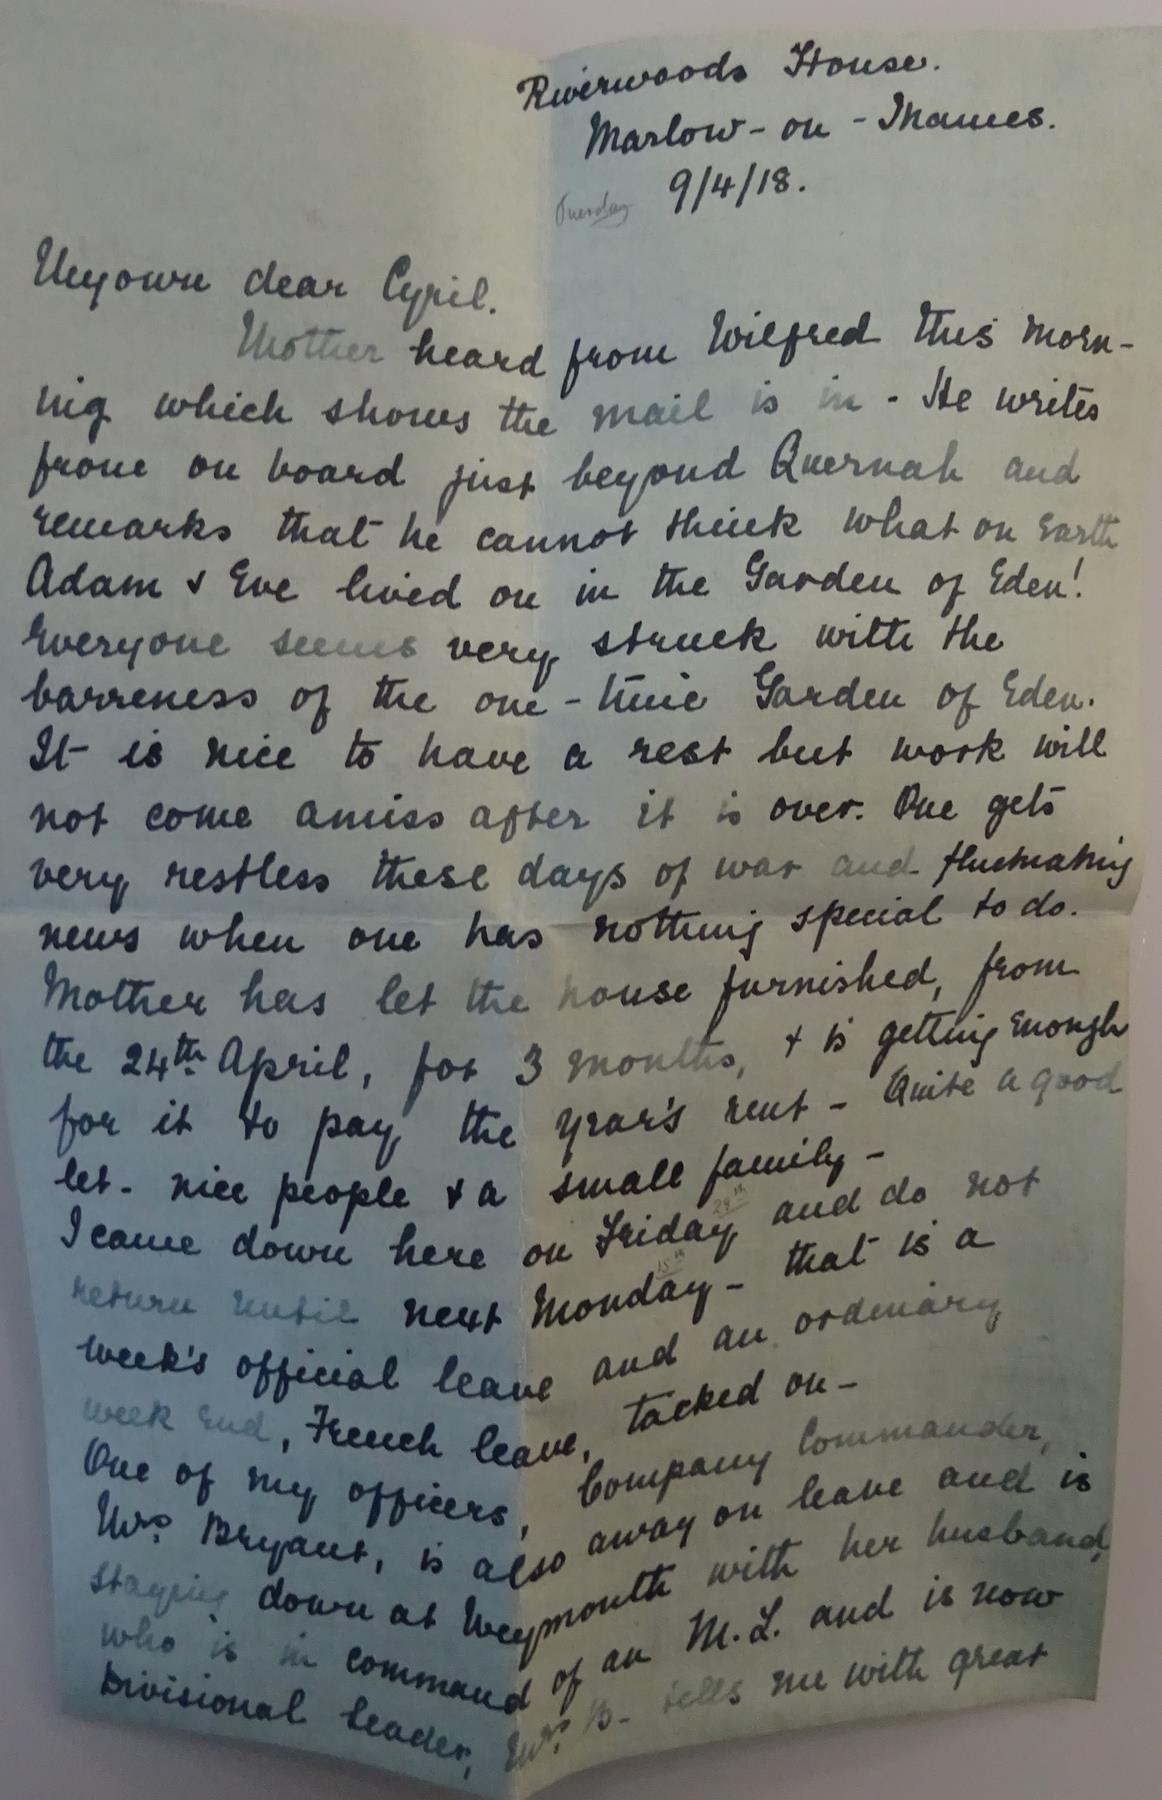 Riverwoods House.
Marlow - on - Thames.
Tuesday 9/4/18.
My own dear Cyril.
Mother heard from Wilfred this morn-
ing which shows the mail is in - He writes
from on board just beyond Quernah and
remarks that he cannot think what on Earth
Adam & Eve lived on in the Garden of Eden!
Everyone seems very struck with the
barreness of the one - time Garden of Eden.
It is nice to have a rest but work will
not come amiss after it is over. One gets
very restless these days of war and fluctuating
news when one has nothing special to do.
Mother has let the house furnished, from
the 24th April, for 3 months, & is getting enough
for it to pay the year's rent - Quite a good
let - nice people & a small family -
I came down here on Friday and do not
return until next Monday 15th - that is a
week's official leave and an ordinary
week end, French leave, tacked on -
One of my officers, Company Commander,
Mrs Bryant, is also away on leave and is
staying down at Weymouth with her husband,
who is in command of an M.L. and is now
Divisional Leader, Mrs B - tells me with great